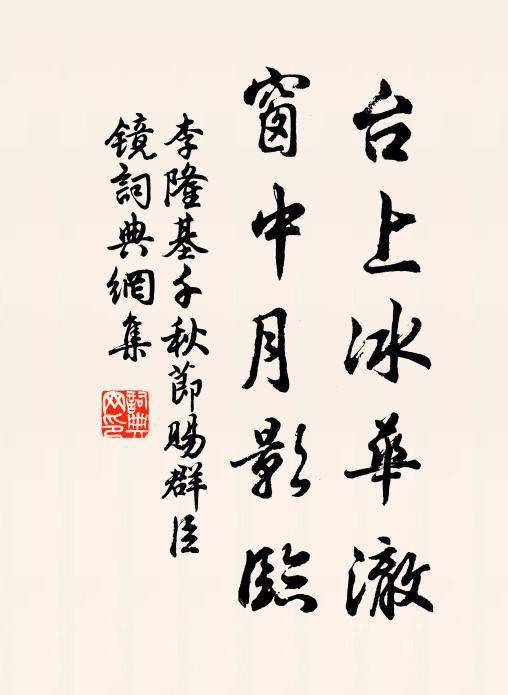 台上冰華澈
窗中月影臨
李隆基千秋節賜群臣
鏡詞典網集
詞典网印